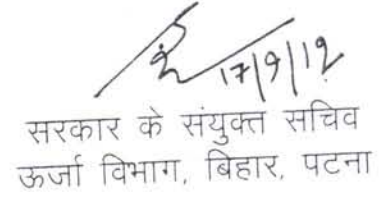 17/9/12
सरकार के संयुक्त सचिव
ऊर्जा विभाग, बिहार, पटना